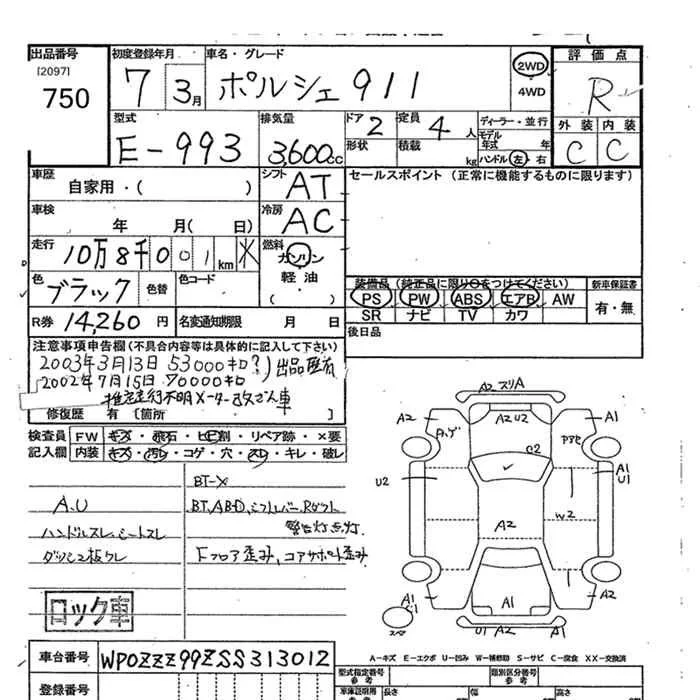 出品番号
[2097]
750
初度登録年月
7 3月
車名・グレード
ポルシェ 911
2WD
4WD
評価点
R
外装 内装
C C
型式
E-993
排気量
3,600cc
ドア
2
形状
定員
4人
積載
kg
ディーラー・並行
モデル
年式 年
ハンドル 左・右
車歴
自家用・( )
シフト
AT
セールスポイント (正常に機能するものに限ります)
車検
年 月( 日)
冷房
AC
走行
10万8千001km
燃料
ガソリン
軽油
( )
色
ブラック
色替
色コード
装備品 (純正品に限り○をつけてください)
PS PW ABS エアB AW
SR ナビ TV カワ
新車保証書
有・無
R券
14,260円
名変通知期限 月 日
後日品
注意事項申告欄(不具合内容等は具体的に記入して下さい)
2003年3月13日 53000キロ(?)出品歴有
2002年7月15日 70000キロ
推定走行不明メーター改ざん車
修復歴 有 [箇所 ]
検査員
記入欄
FW キズ・飛石・ヒビ割・リペア跡・×要
内装 キズ・汚レ・コゲ・穴・スレ・キレ・破レ
BT-X
A.U
ハンドルスレ、シートスレ
警告灯点灯
Fフロア歪み、コアサポート歪み
ロック車
A2 スリA
A2
A2U2
A1
U2
A2
A1
U1
W2
A2
A1
A1
A2
スペア
U1 A2
A1
車台番号
WP0ZZZ99ZSS313012
A－キズ E－エクボ U－凹み W－補修跡 S－サビ C－腐食 XX－交換済
登録番号
型式指定番号
類別区分番号
車庫証明用
参考
長さ
幅
高さ